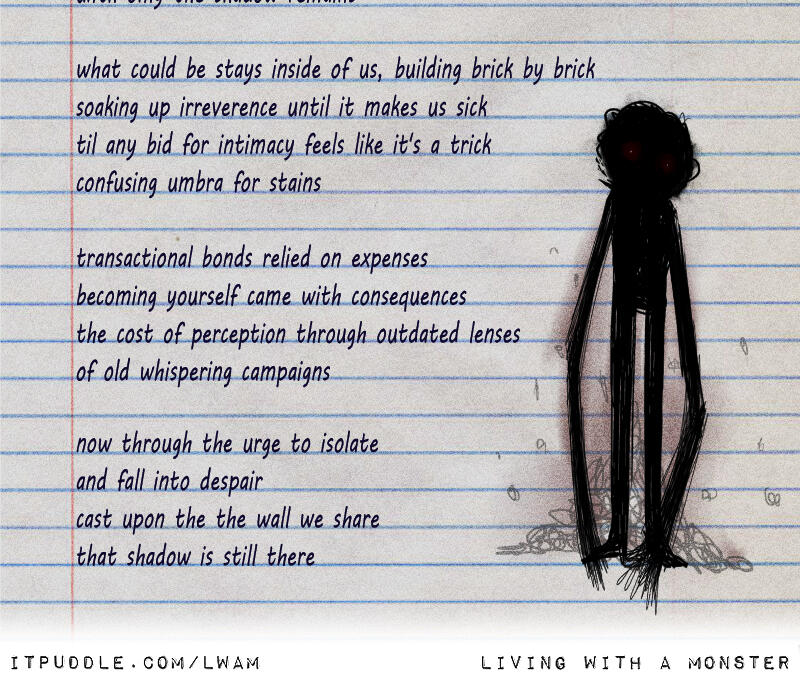 until only the shadow remains
what could be stays inside of us, building brick by brick
soaking up irreverence until it makes us sick
til any bid for intimacy feels like it's a trick
confusing umbra for stains
transactional bonds relied on expenses
becoming yourself came with consequences
the cost of perception through outdated lenses
of old whispering campaigns
now through the urge to isolate
and fall into despair
cast upon the the wall we share
that shadow is still there
ITPUDDLE.COM/LWAM
LIVING WITH A MONSTER